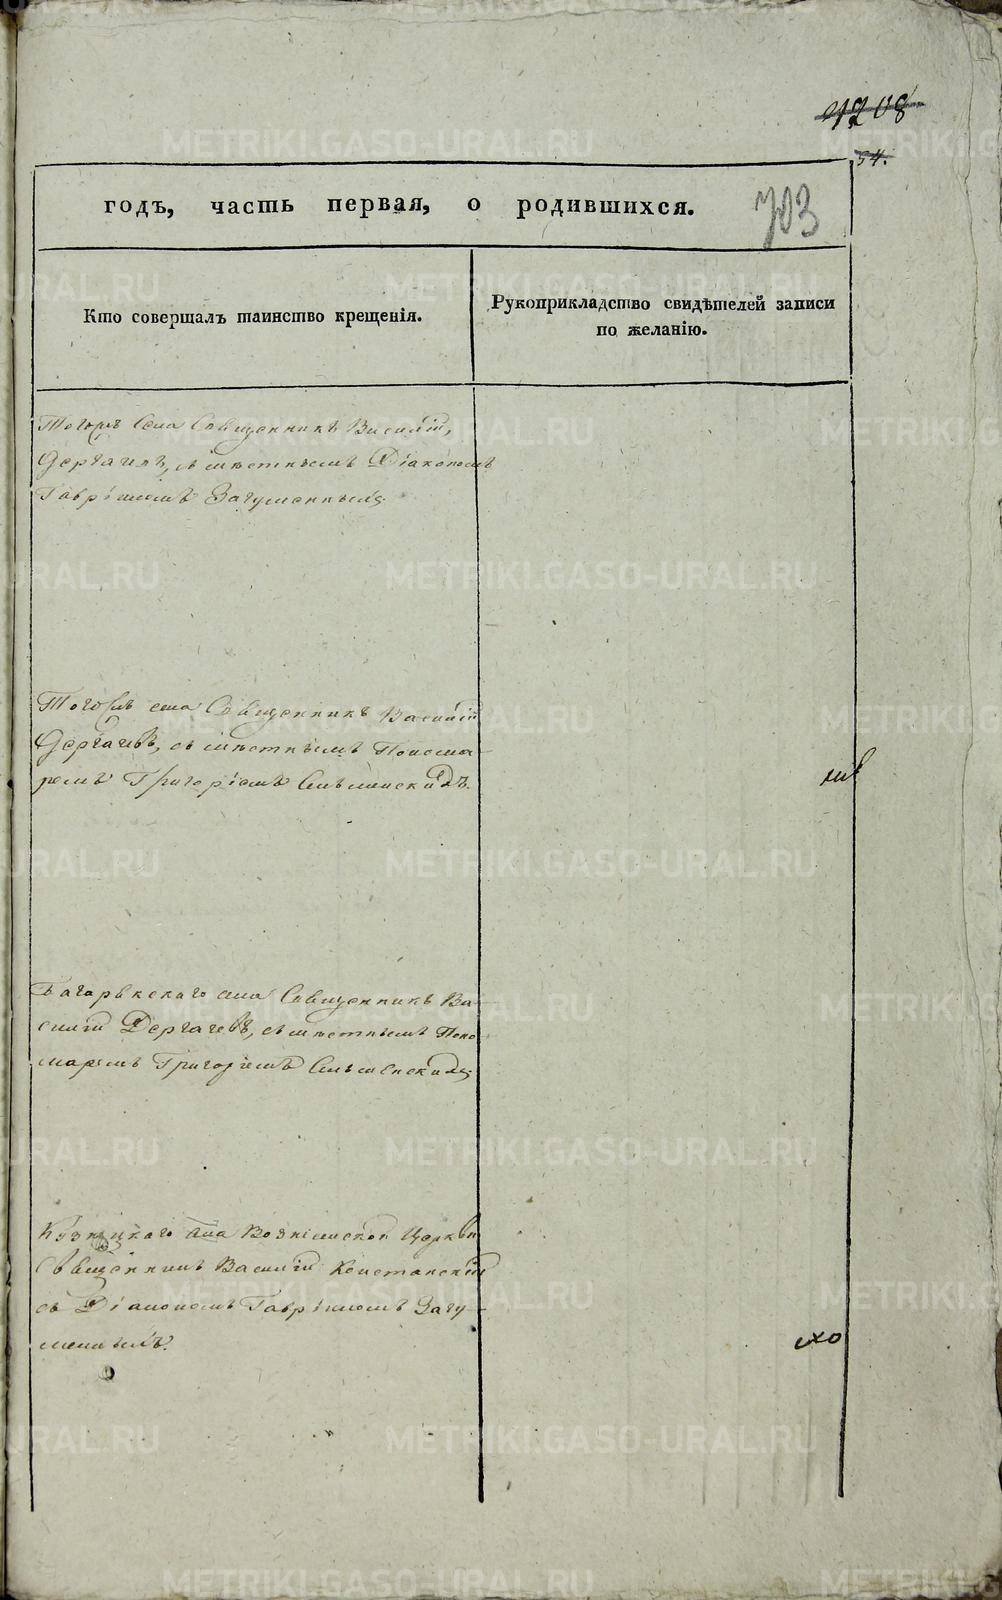 1208
54.
годъ, часть первая, о родившихся.
703
Кто совершалъ таинство крещенія.
Рукоприкладство свидѣтелей записи
по желанію.
Тогожъ села Священникъ Василій
Дергачевъ, съ мѣстнымъ Діакономъ
Гавріиломъ Загуменныхъ
Тогожъ села Священникъ Василій
Дергачевъ, съ мѣстнымъ Поно-
ремъ Григоріемъ
Багарякскаго села Священникъ Ва-
силій Дергачевъ, съ мѣстнымъ Поно
маремъ Григоріемъ
села Вознесенской Церкви
Священникъ Василій
съ Діакономъ Гавріиломъ Загу-
менныхъ.
METRIKI.GASO-URAL.RU